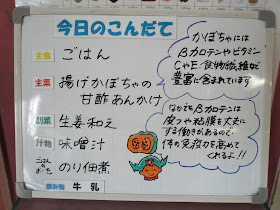 今日のこんだて
主食 ごはん
主菜 揚げかぼちゃの
甘酢あんかけ
副菜 生姜和え
汁物 味噌汁
ごはんおとも のり佃煮
飲み物 牛乳
かぼちゃには
βカロテンやビタミン
CやE、食物繊維が
豊富に含まれています
なかでもβカロテンは
皮フや粘膜を丈夫に
する働きがあるので
体の免疫力を高めて
くれるよ!!